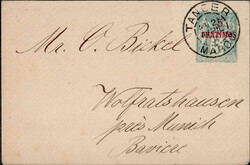 TANGER
MAROC
CENTIMOS
Mr. O. Bickel
Wolfratshausen
près Munich
Bavière